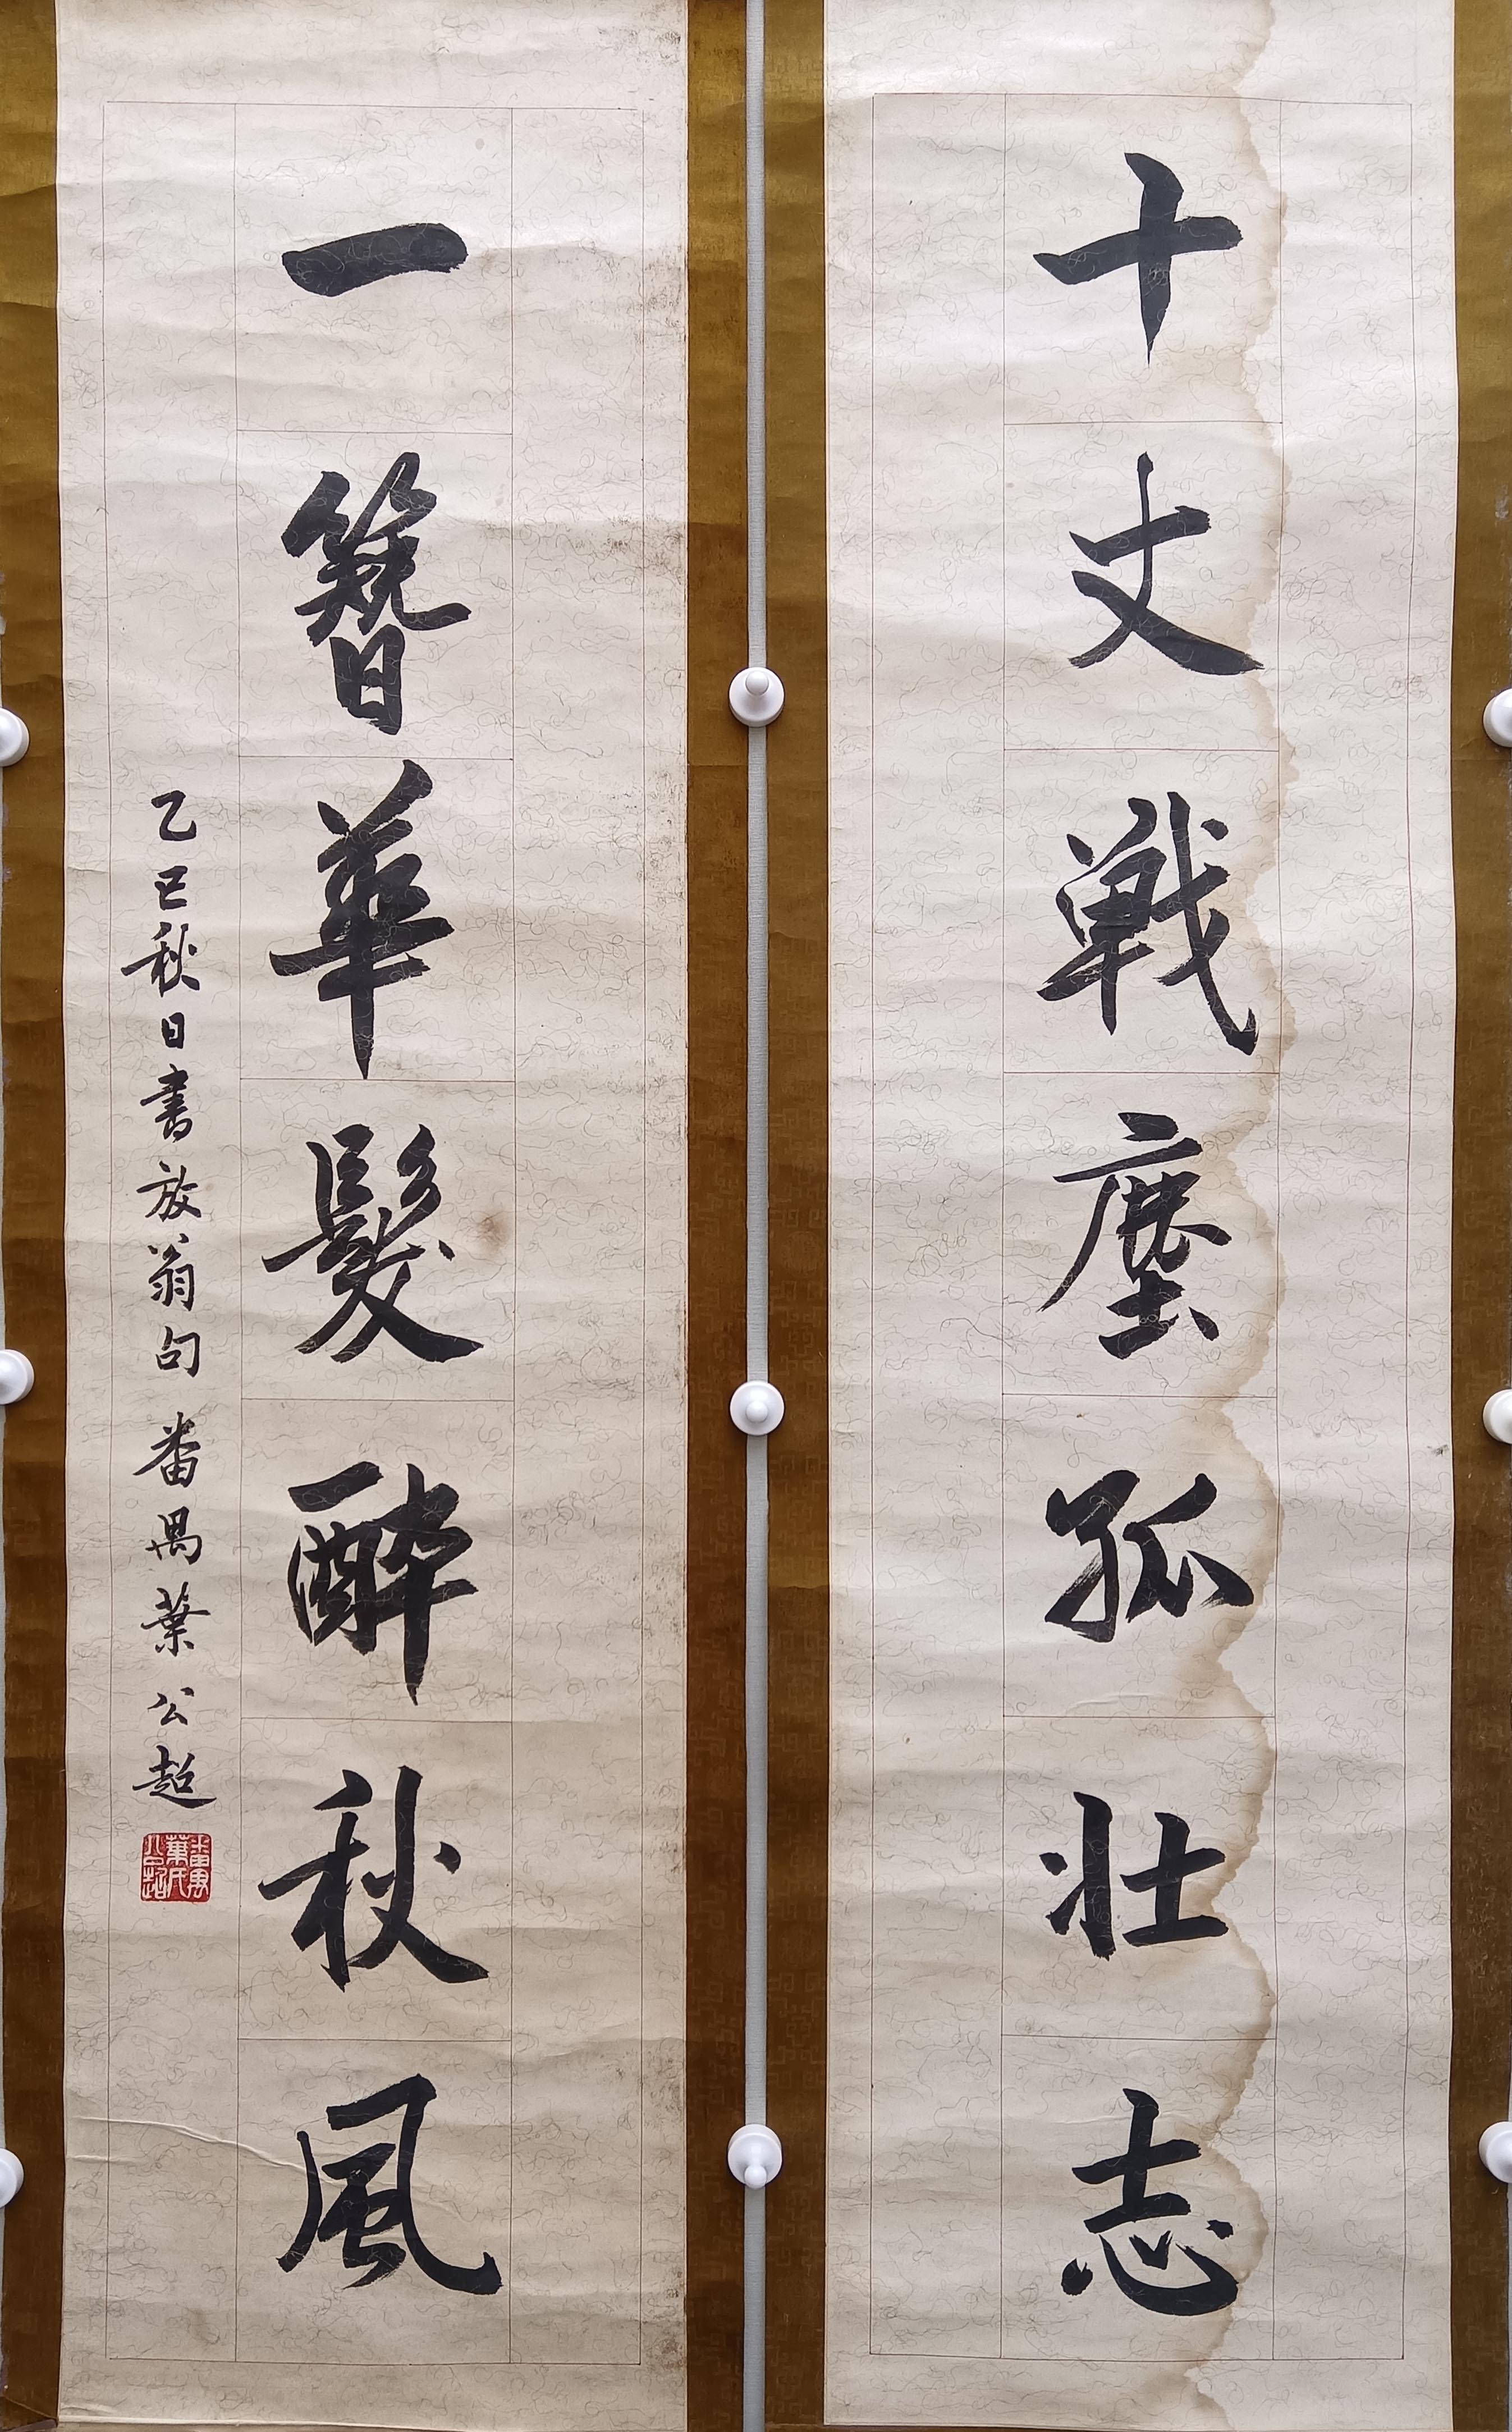 十丈戰塵孤壯志
一簪華髮醉秋風
乙巳秋日書放翁句 番禺葉公超
番禺葉氏公超